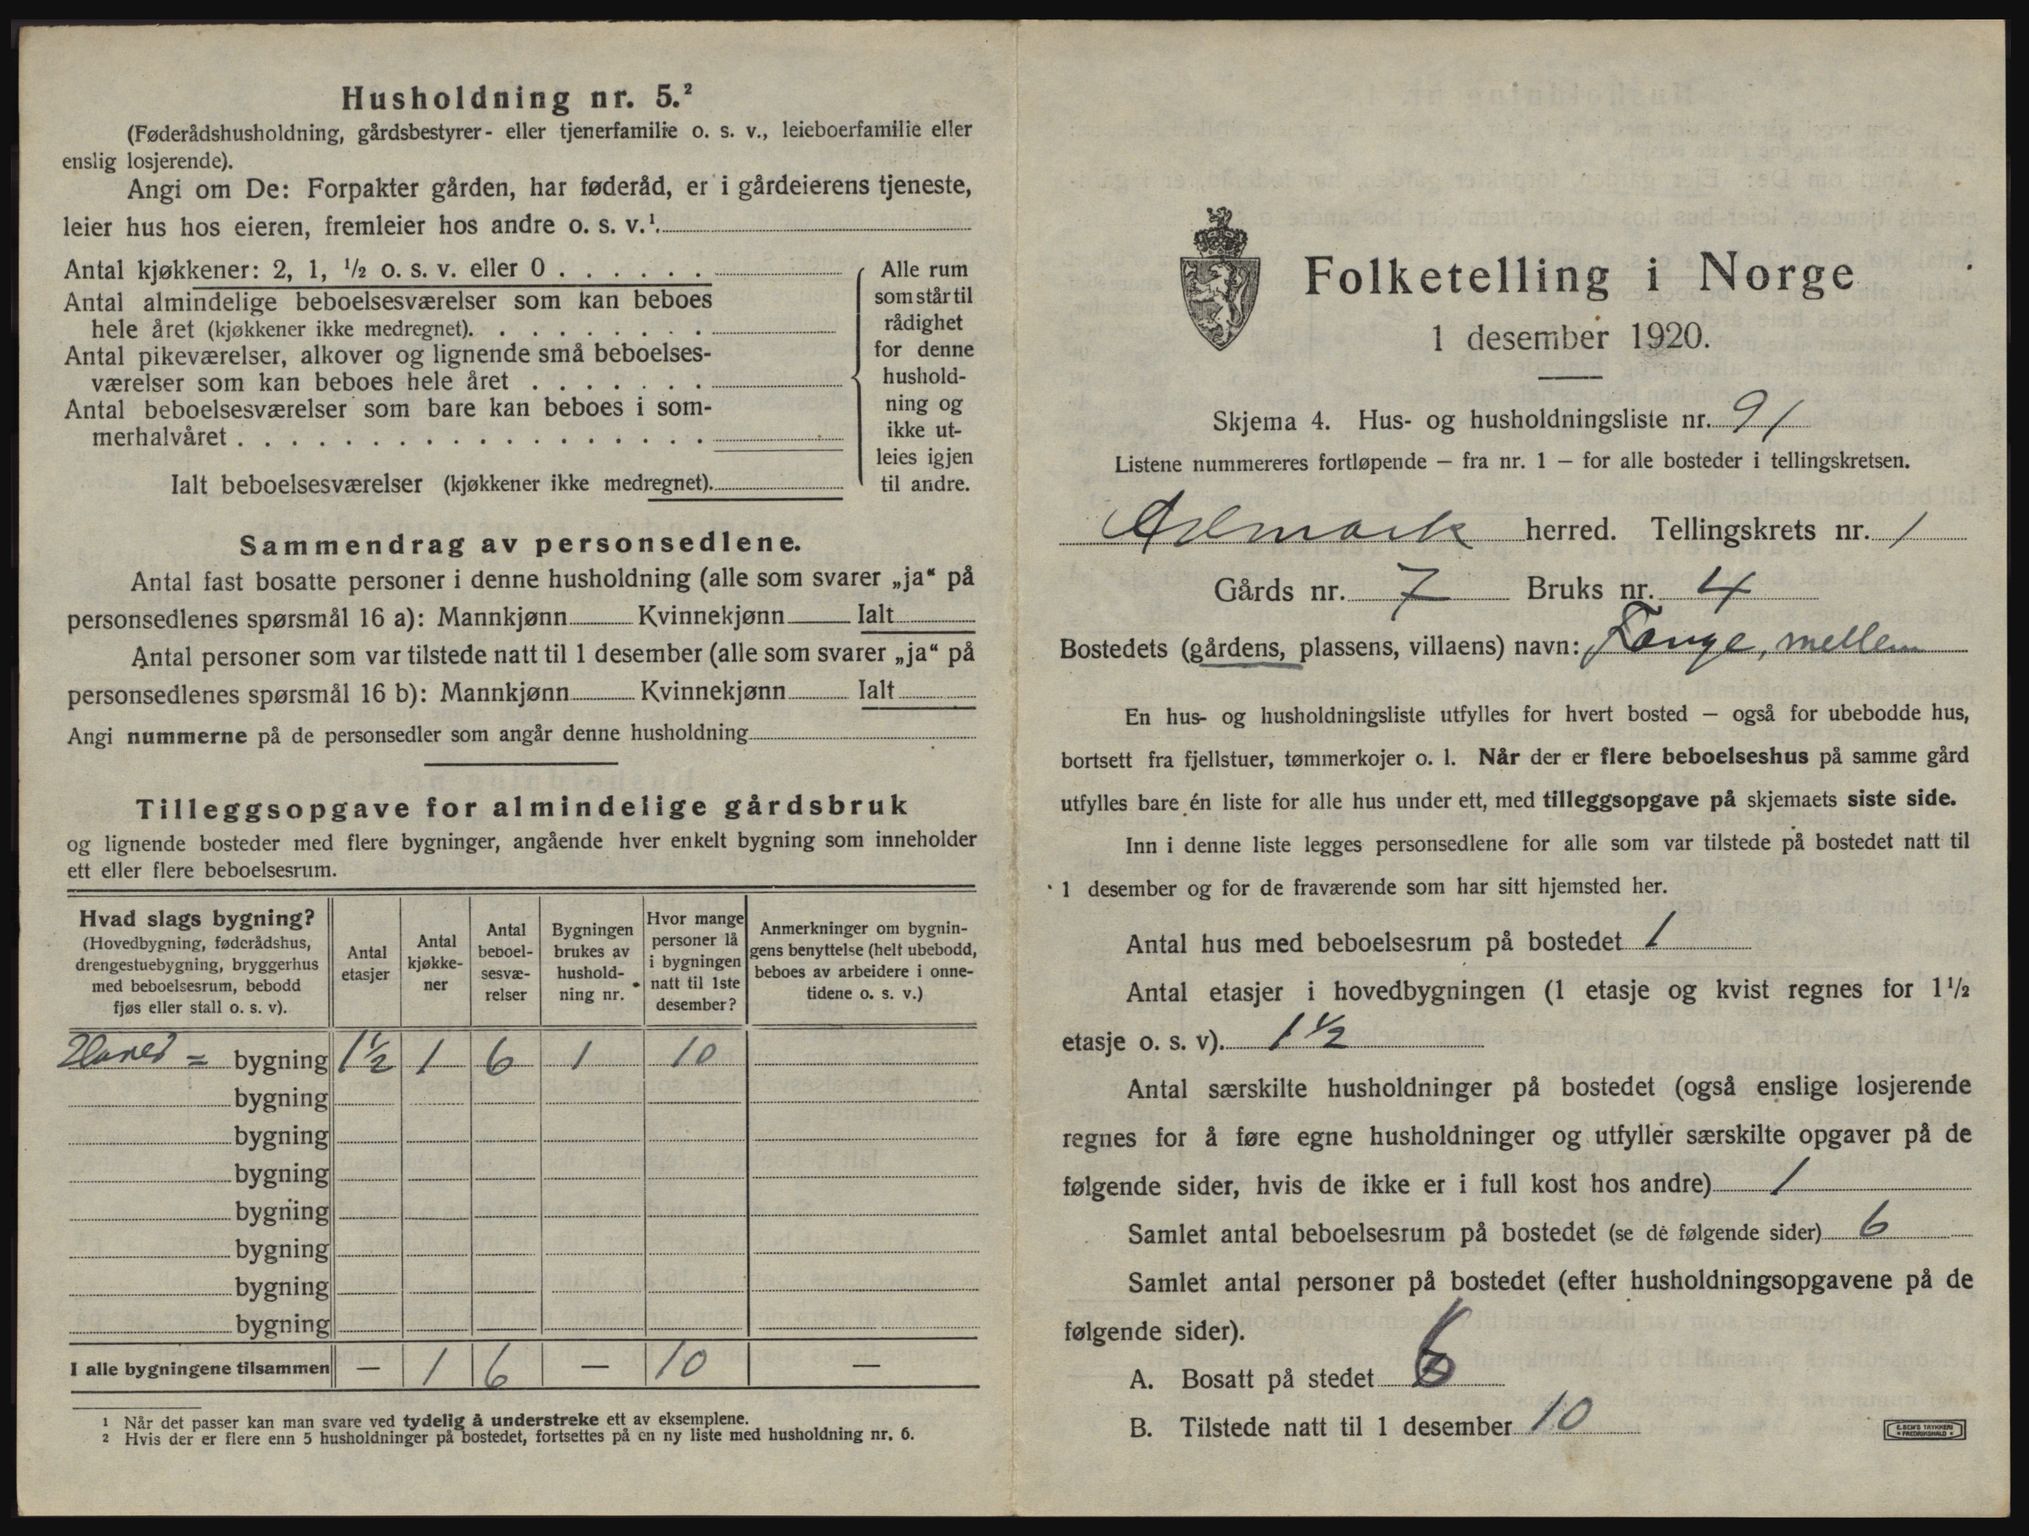 Husholdning nr. 5.²
(Føderådshusholdning, gårdsbestyrer- eller tjenerfamilie o. s. v., leieboerfamilie eller
enslig losjerende).
Angi om De: Forpakter gården, har føderåd, er i gårdeierens tjeneste,
leier hus hos eieren, fremleier hos andre o. s. v.¹
Antal kjøkkener: 2, 1, ½ o. s. v. eller 0
Antal almindelige beboelsesværelser som kan beboes
hele året (kjøkkener ikke medregnet).
Antal pikeværelser, alkover og lignende små beboelses-
værelser som kan beboes hele året
Antal beboelsesværelser som bare kan beboes i som-
merhalvåret
Ialt beboelsesværelser (kjøkkener ikke medregnet).
Alle rum
som står til
rådighet
for denne
hushold-
ning og
ikke ut-
leies igjen
til andre.
Sammendrag av personsedlene.
Antal fast bosatte personer i denne husholdning (alle som svarer „ja“ på
personsedlenes spørsmål 16 a): Mannkjønn Kvinnekjønn Ialt
Antal personer som var tilstede natt til 1 desember (alle som svarer „ja“ på
personsedlenes spørsmål 16 b): Mannkjønn Kvinnekjønn Ialt
Angi nummerne på de personsedler som angår denne husholdning
Tilleggsopgave for almindelige gårdsbruk
og lignende bosteder med flere bygninger, angående hver enkelt bygning som inneholder
ett eller flere beboelsesrum.
Hvad slags bygning?
(Hovedbygning, føderådshus,
drengestuebygning, bryggerhus
med beboelsesrum, bebodd
fjøs eller stall o. s. v).
Antal
etasjer
Antal
kjøkke-
ner
Antal
beboel-
sesvæ-
relser
Bygningen
brukes av
hushold-
ning nr.
Hvor mange
personer lå
i bygningen
natt til 1ste
desember?
Anmerkninger om bygnin-
gens benyttelse (helt ubebodd,
beboes av arbeidere i onne-
tidene o. s. v.)
Hoved = bygning 1½ 1 6 1 10
bygning
bygning
bygning
bygning
bygning
bygning
bygning
I alle bygningene tilsammen — 1 6 — 10 —
¹ Når det passer kan man svare ved tydelig å understreke ett av eksemplene.
² Hvis der er flere enn 5 husholdninger på bostedet, fortsettes på en ny liste med husholdning nr. 6.
Folketelling i Norge
1 desember 1920.
Skjema 4. Hus- og husholdningsliste nr. 91
Listene nummereres fortløpende — fra nr. 1 — for alle bosteder i tellingskretsen.
Aremark herred. Tellingskrets nr. 1
Gårds nr. 7 Bruks nr. 4
Bostedets (gårdens, plassens, villaens) navn: Fange, mellem
En hus- og husholdningsliste utfylles for hvert bosted — også for ubebodde hus,
bortsett fra fjellstuer, tømmerkojer o. l. Når der er flere beboelseshus på samme gård
utfylles bare én liste for alle hus under ett, med tilleggsopgave på skjemaets siste side.
Inn i denne liste legges personsedlene for alle som var tilstede på bostedet natt til
1 desember og for de fraværende som har sitt hjemsted her.
Antal hus med beboelsesrum på bostedet 1
Antal etasjer i hovedbygningen (1 etasje og kvist regnes for 1½
etasje o. s. v). 1½
Antal særskilte husholdninger på bostedet (også enslige losjerende
regnes for å føre egne husholdninger og utfyller særskilte opgaver på de
følgende sider, hvis de ikke er i full kost hos andre) 1
Samlet antal beboelsesrum på bostedet (se de følgende sider) 6
Samlet antal personer på bostedet (efter husholdningsopgavene på de
følgende sider).
A. Bosatt på stedet 6
B. Tilstede natt til 1 desember 10